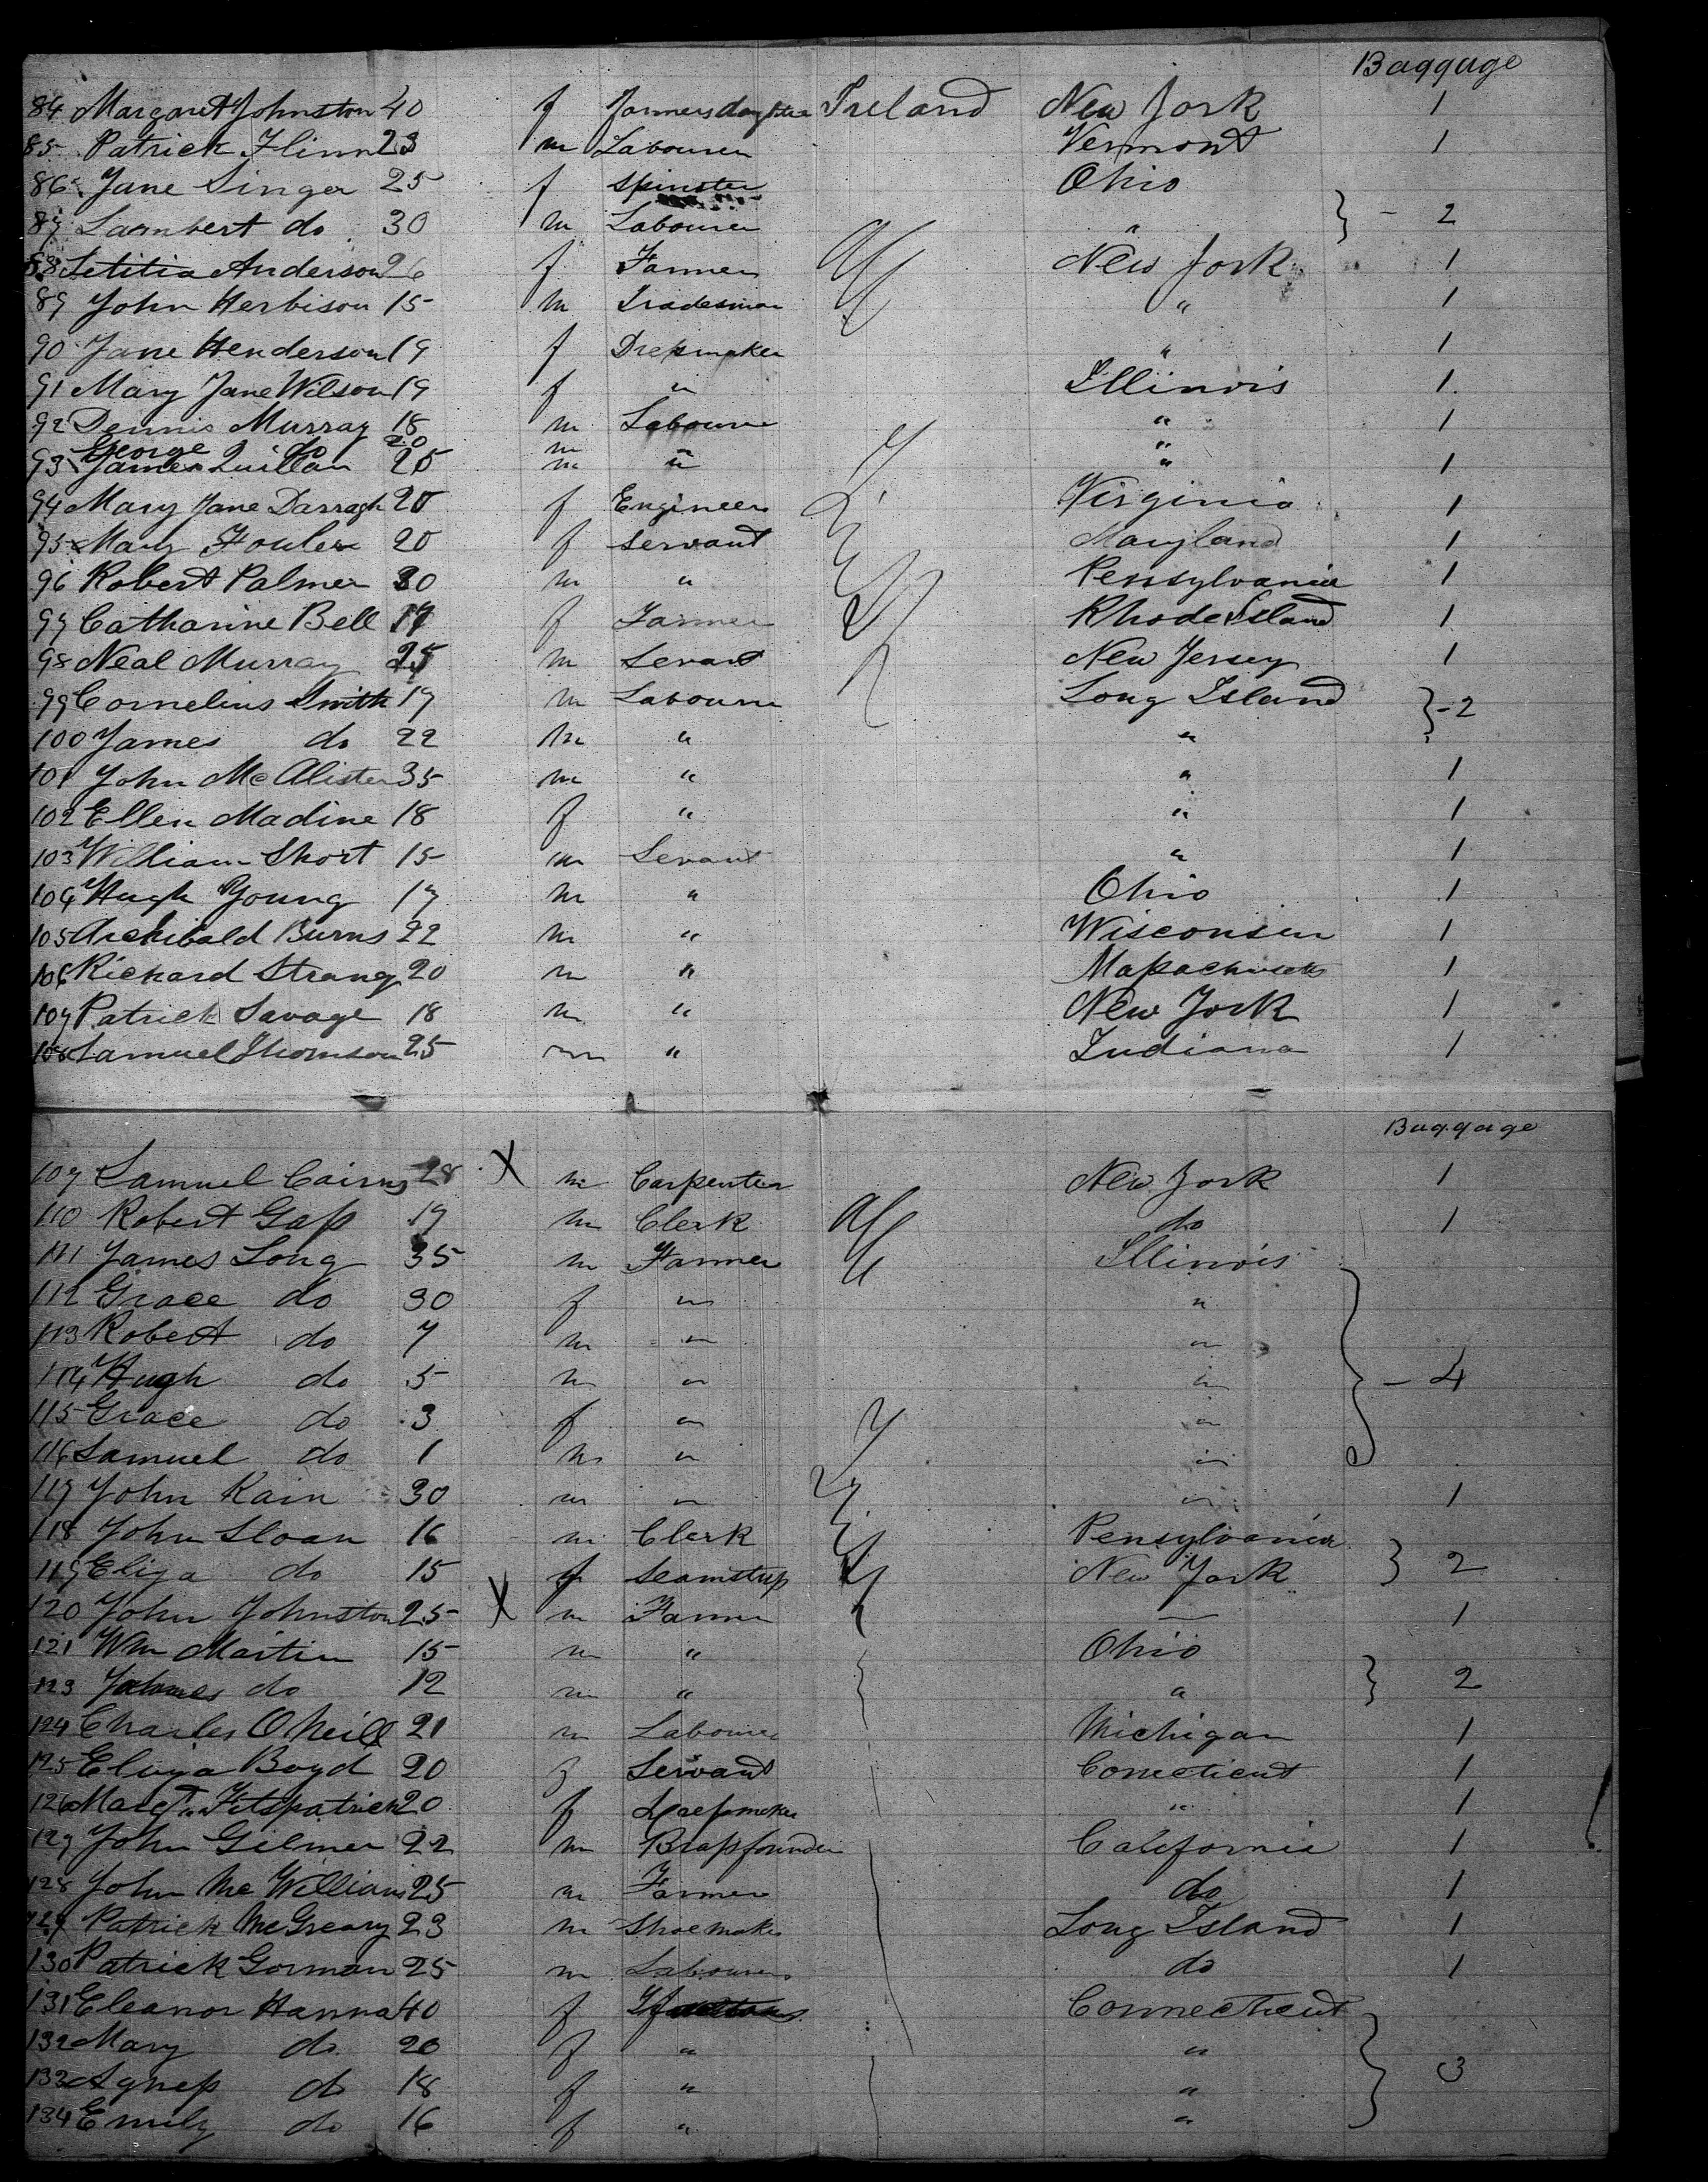 Baggage
84 Margaret Johnston 40 f farmers daughter Ireland New York 1
85 Patrick Flinn 23 m Labourer Vermont 1
86 Jane Singer 25 f Spinster Ohio
87 Lambert do 30 m Labourer " } - 2
88 Letitia Anderson 26 f Farmer New York 1
89 John Herbison 15 m Tradesman " 1
90 Jane Henderson 19 f Dressmaker " 1
91 Mary Jane Wilson 19 f " Illinois 1
92 Dennis Murray 18 m Labourer " 1
George do 20 m "
93 James Quillan 25 m " " 1
94 Mary Jane Darragh 20 f Engineer Virginia 1
95 Mary Fowler 20 f servant Maryland 1
96 Robert Palmer 30 m " Pensylvania 1
97 Catharine Bell 17 f Farmer Rhode Island 1
98 Neal Murray 25 m Sevant New Jersey 1
99 Cornelius Smith 19 m Labourer Long Island } - 2
100 James do 22 m " "
101 John McAlister 35 m " " 1
102 Ellen Madine 18 f " " 1
103 William Short 15 m Sevant " 1
104 Hugh Young 17 m " Ohio 1
105 Archibald Burns 22 m " Wisconsin 1
106 Richard Strang 20 m " Massachusetts 1
107 Patrick Savage 18 m " New York 1
108 Samuel Thomson 25 m " Indiana 1
Baggage
109 Samuel Cairns 28 X m Carpenter New York 1
110 Robert Gass 19 m Clerk do 1
111 James Long 35 m Farmer Illinois
112 Grace do 30 f " "
113 Robert do 7 m " "
114 Hugh do 5 m " " } - 4
115 Grace do 3 f " "
116 Samuel do 1 m " "
117 John Kain 30 m " " 1
118 John Sloan 16 m Clerk Pensylvania
119 Eliza do 15 f seamstress New York } 2
120 John Johnston 25 X m Farmer — 1
121 Wm Martin 15 m " Ohio
123 James do 12 m " " } 2
124 Charles O Neill 21 m Labourer Michigan 1
125 Eliza Boyd 20 f Servant Conecticut 1
126 Margt Fitspatrick 20 f Dressmaker " 1
127 John Gilmer 22 m Brassfounder California 1
128 John McWilliams 25 m Farmer do 1
129 Patrick McGreary 23 m Shoemaker Long Island 1
130 Patrick Gorman 25 m Labourer do 1
131 Eleanor Hanna 40 f Connecticut
132 Mary do 20 f " "
133 Agness do 18 f " " } 3
134 Emily do 16 f " "